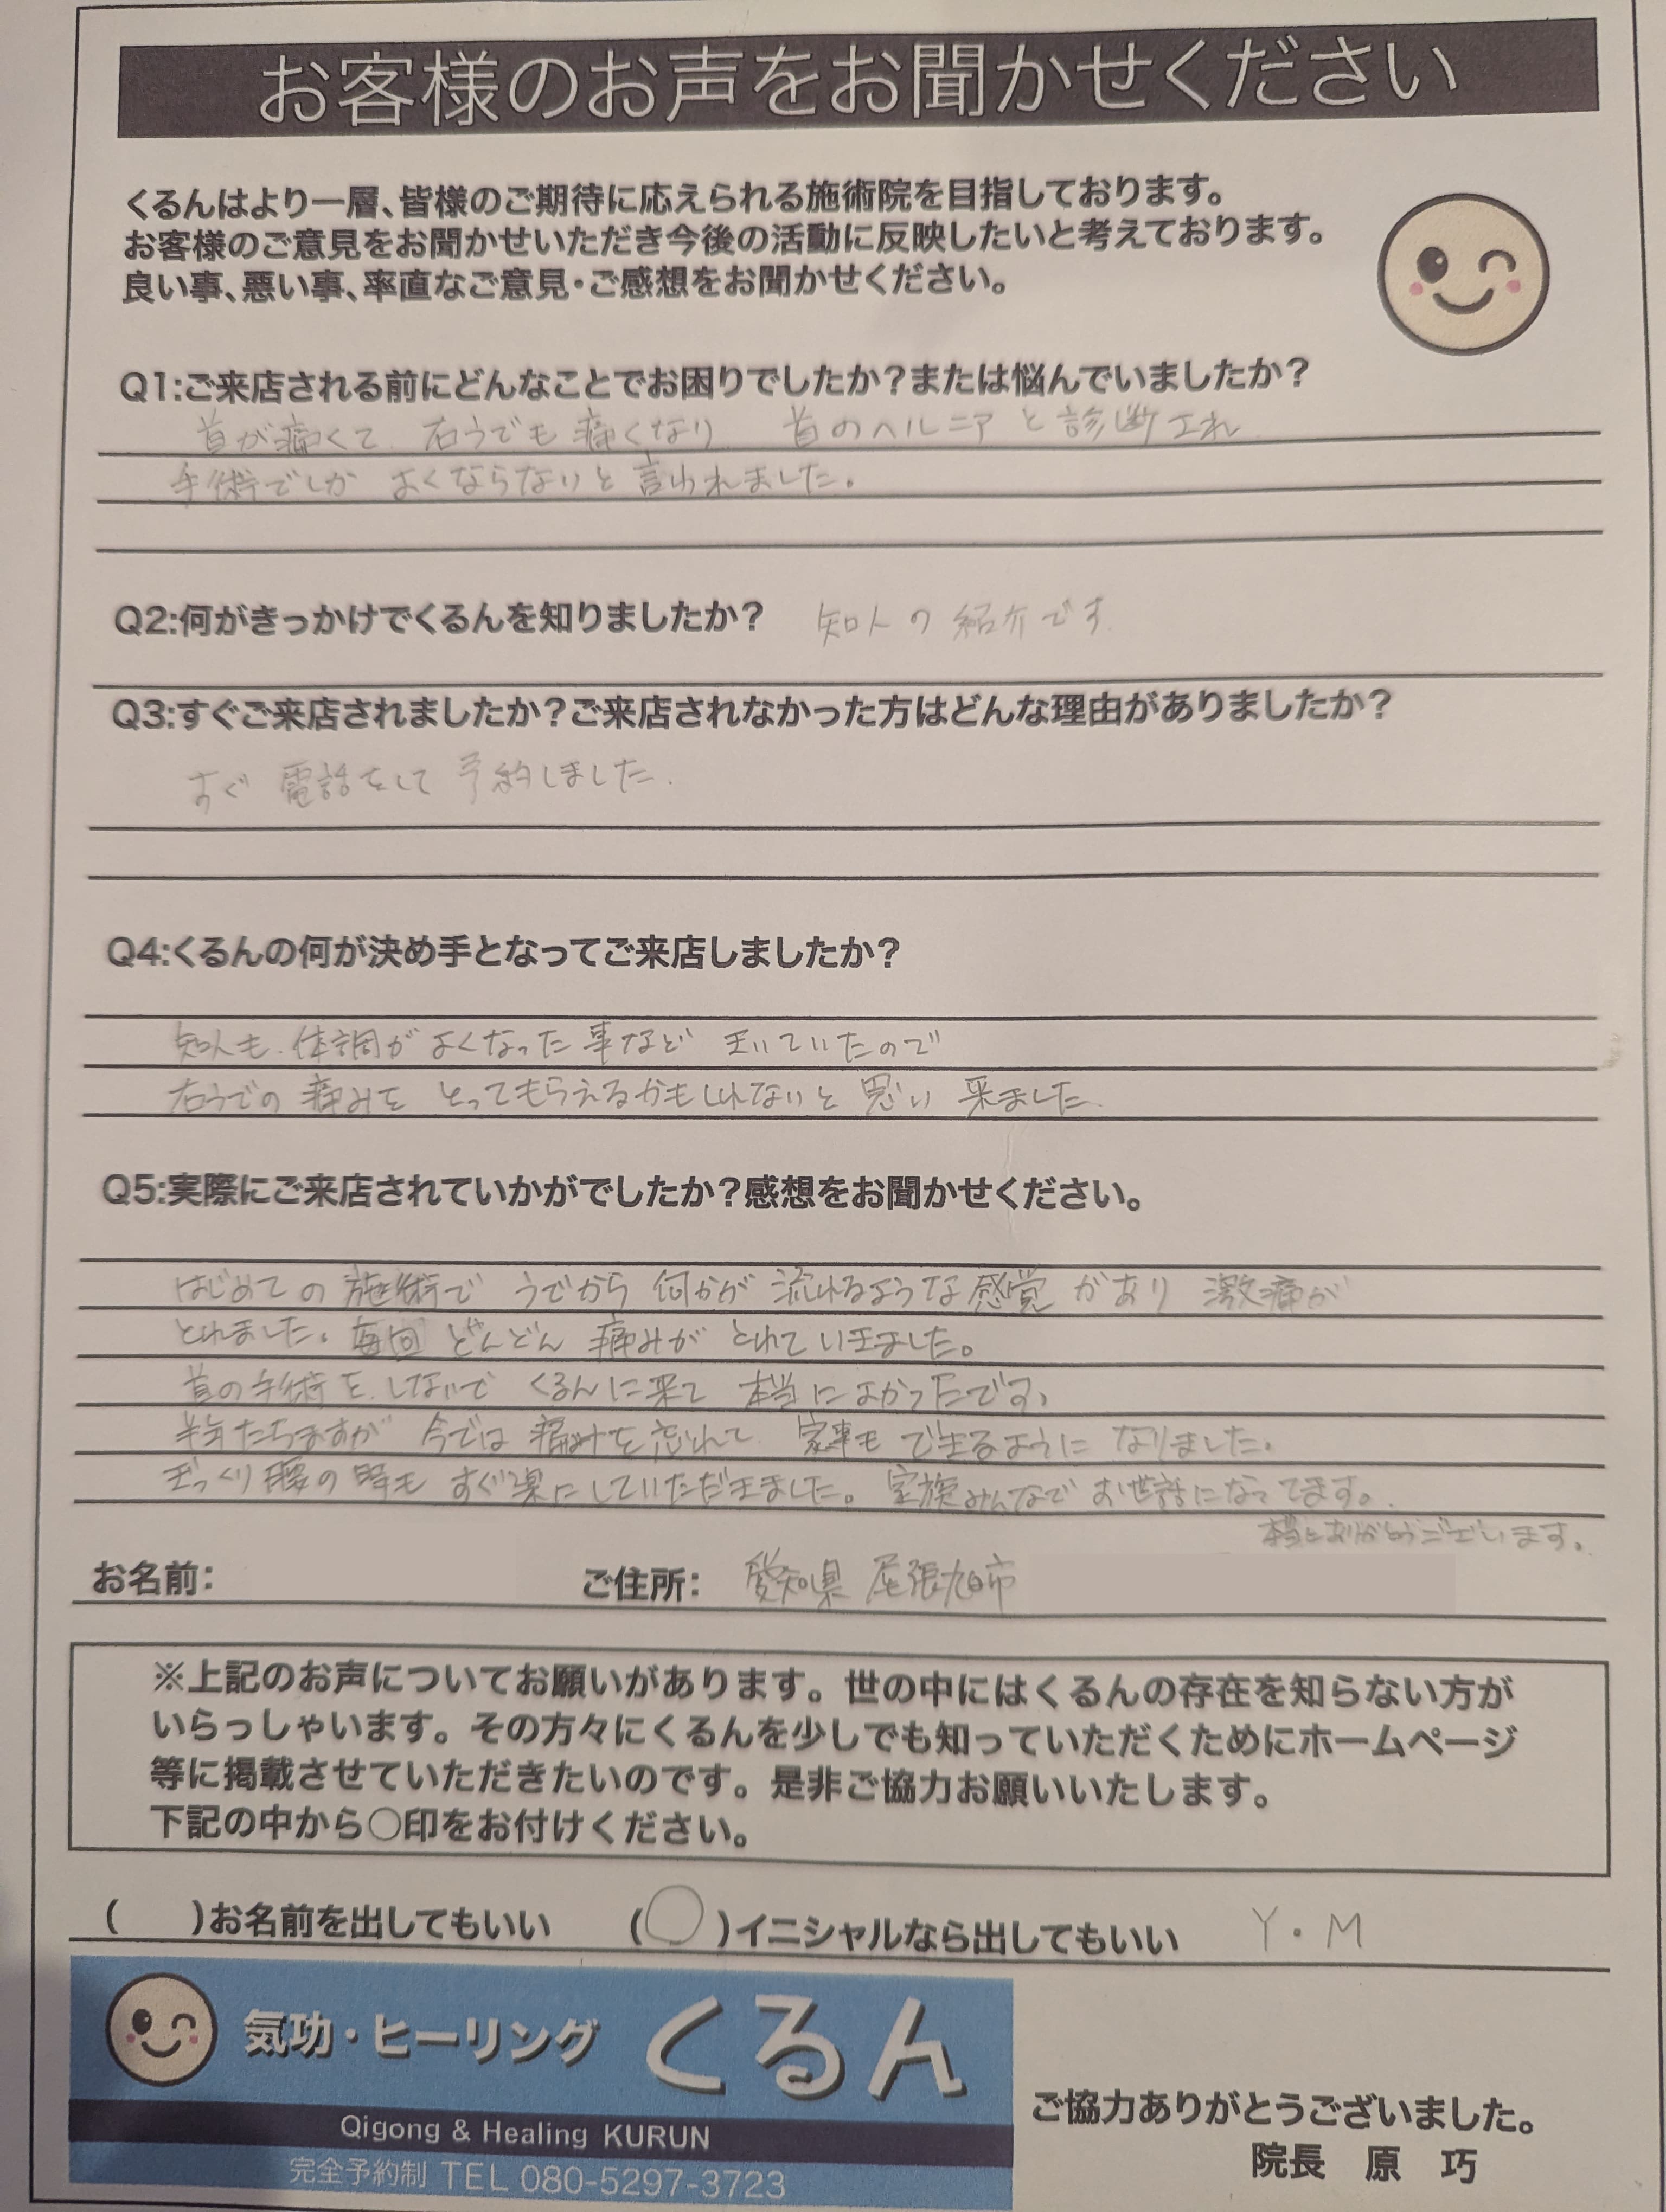 お客様のお声をお聞かせください
くるんはより一層、皆様のご期待に応えられる施術院を目指しております。
お客様のご意見をお聞かせいただき今後の活動に反映したいと考えております。
良い事、悪い事、率直なご意見・ご感想をお聞かせください。
Q1:ご来店される前にどんなことでお困りでしたか?または悩んでいましたか?
首が痛くて、右うでも痛くなり 首のヘルニアと診断され
手術でしか よくならないと言われました。
Q2:何がきっかけでくるんを知りましたか? 知人の紹介です
Q3:すぐご来店されましたか?ご来店されなかった方はどんな理由がありましたか?
すぐ 電話をして 予約しました.
Q4:くるんの何が決め手となってご来店しましたか?
知人も、体調がよくなった事など きいていたので
右うでの 痛みを とってもらえるかもしれないと 思い 来ました.
Q5:実際にご来店されていかがでしたか?感想をお聞かせください。
はじめての 施術で うでから 何かが 流れるような感覚 があり 激痛が
とれました。毎回 どんどん 痛みが とれて いきました。
首の手術を、しないで くるんに来て 本当に よかったです。
半年たちますが 今では 痛みを忘れて 家事も できるように なりました。
ぎっくり腰の時も すぐ楽にしていただきました。家族みんなで お世話になってます。
本当にありがとうございます。
お名前: ご住所: 愛知県 尾張旭市
※上記のお声についてお願いがあります。世の中にはくるんの存在を知らない方が
いらっしゃいます。その方々にくるんを少しでも知っていただくためにホームページ
等に掲載させていただきたいのです。是非ご協力お願いいたします。
下記の中から○印をお付けください。
( )お名前を出してもいい (○)イニシャルなら出してもいい Y・M
気功・ヒーリング くるん
Qigong & Healing KURUN
完全予約制 TEL 080-5297-3723
ご協力ありがとうございました。
院長 原 巧